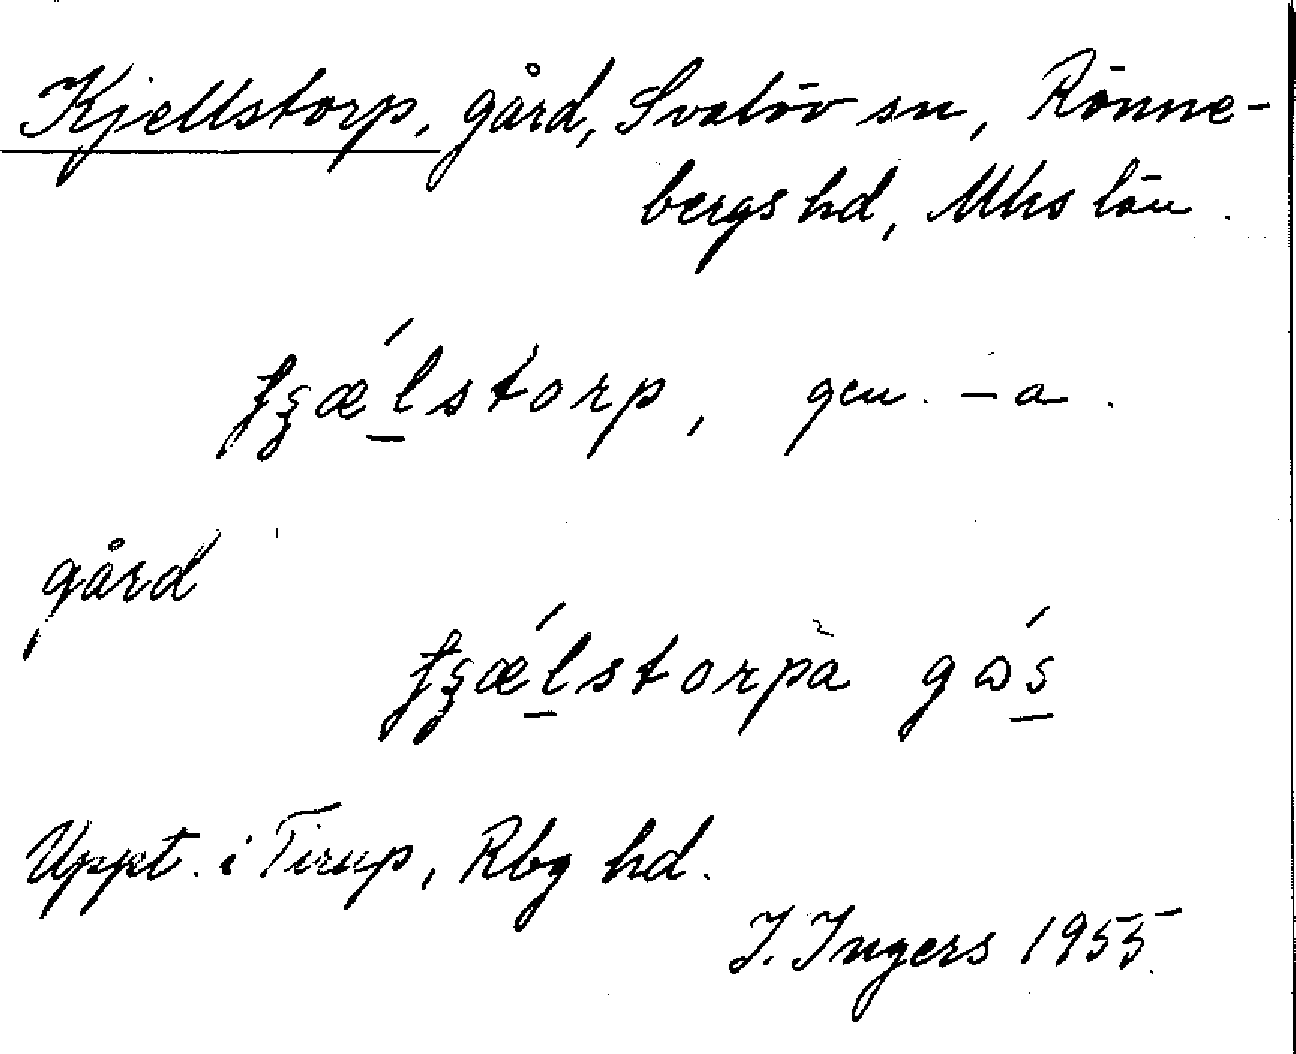 Kjellstorp, gård, Svalöv sn, Rönne-
bergs hd, Mhs län.
ʄʒæ´lstorp, gen. -a.
gård
ʄʒæ´lstorpa gɷ´s
Uppt. i Tirup, Rbg hd.
I. Ingers 1955.